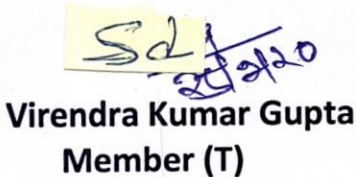 Sd/
Virendra Kumar Gupta
Member (T)